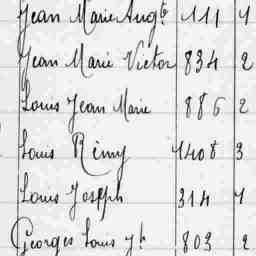 Jean Marie Augte 111 1
Jean Marie Victor 834 2
Louis Jean Marie 886 2
Louis Rémy 1408 3
Louis Joseph 314 1
Georges Louis Jh 803 2